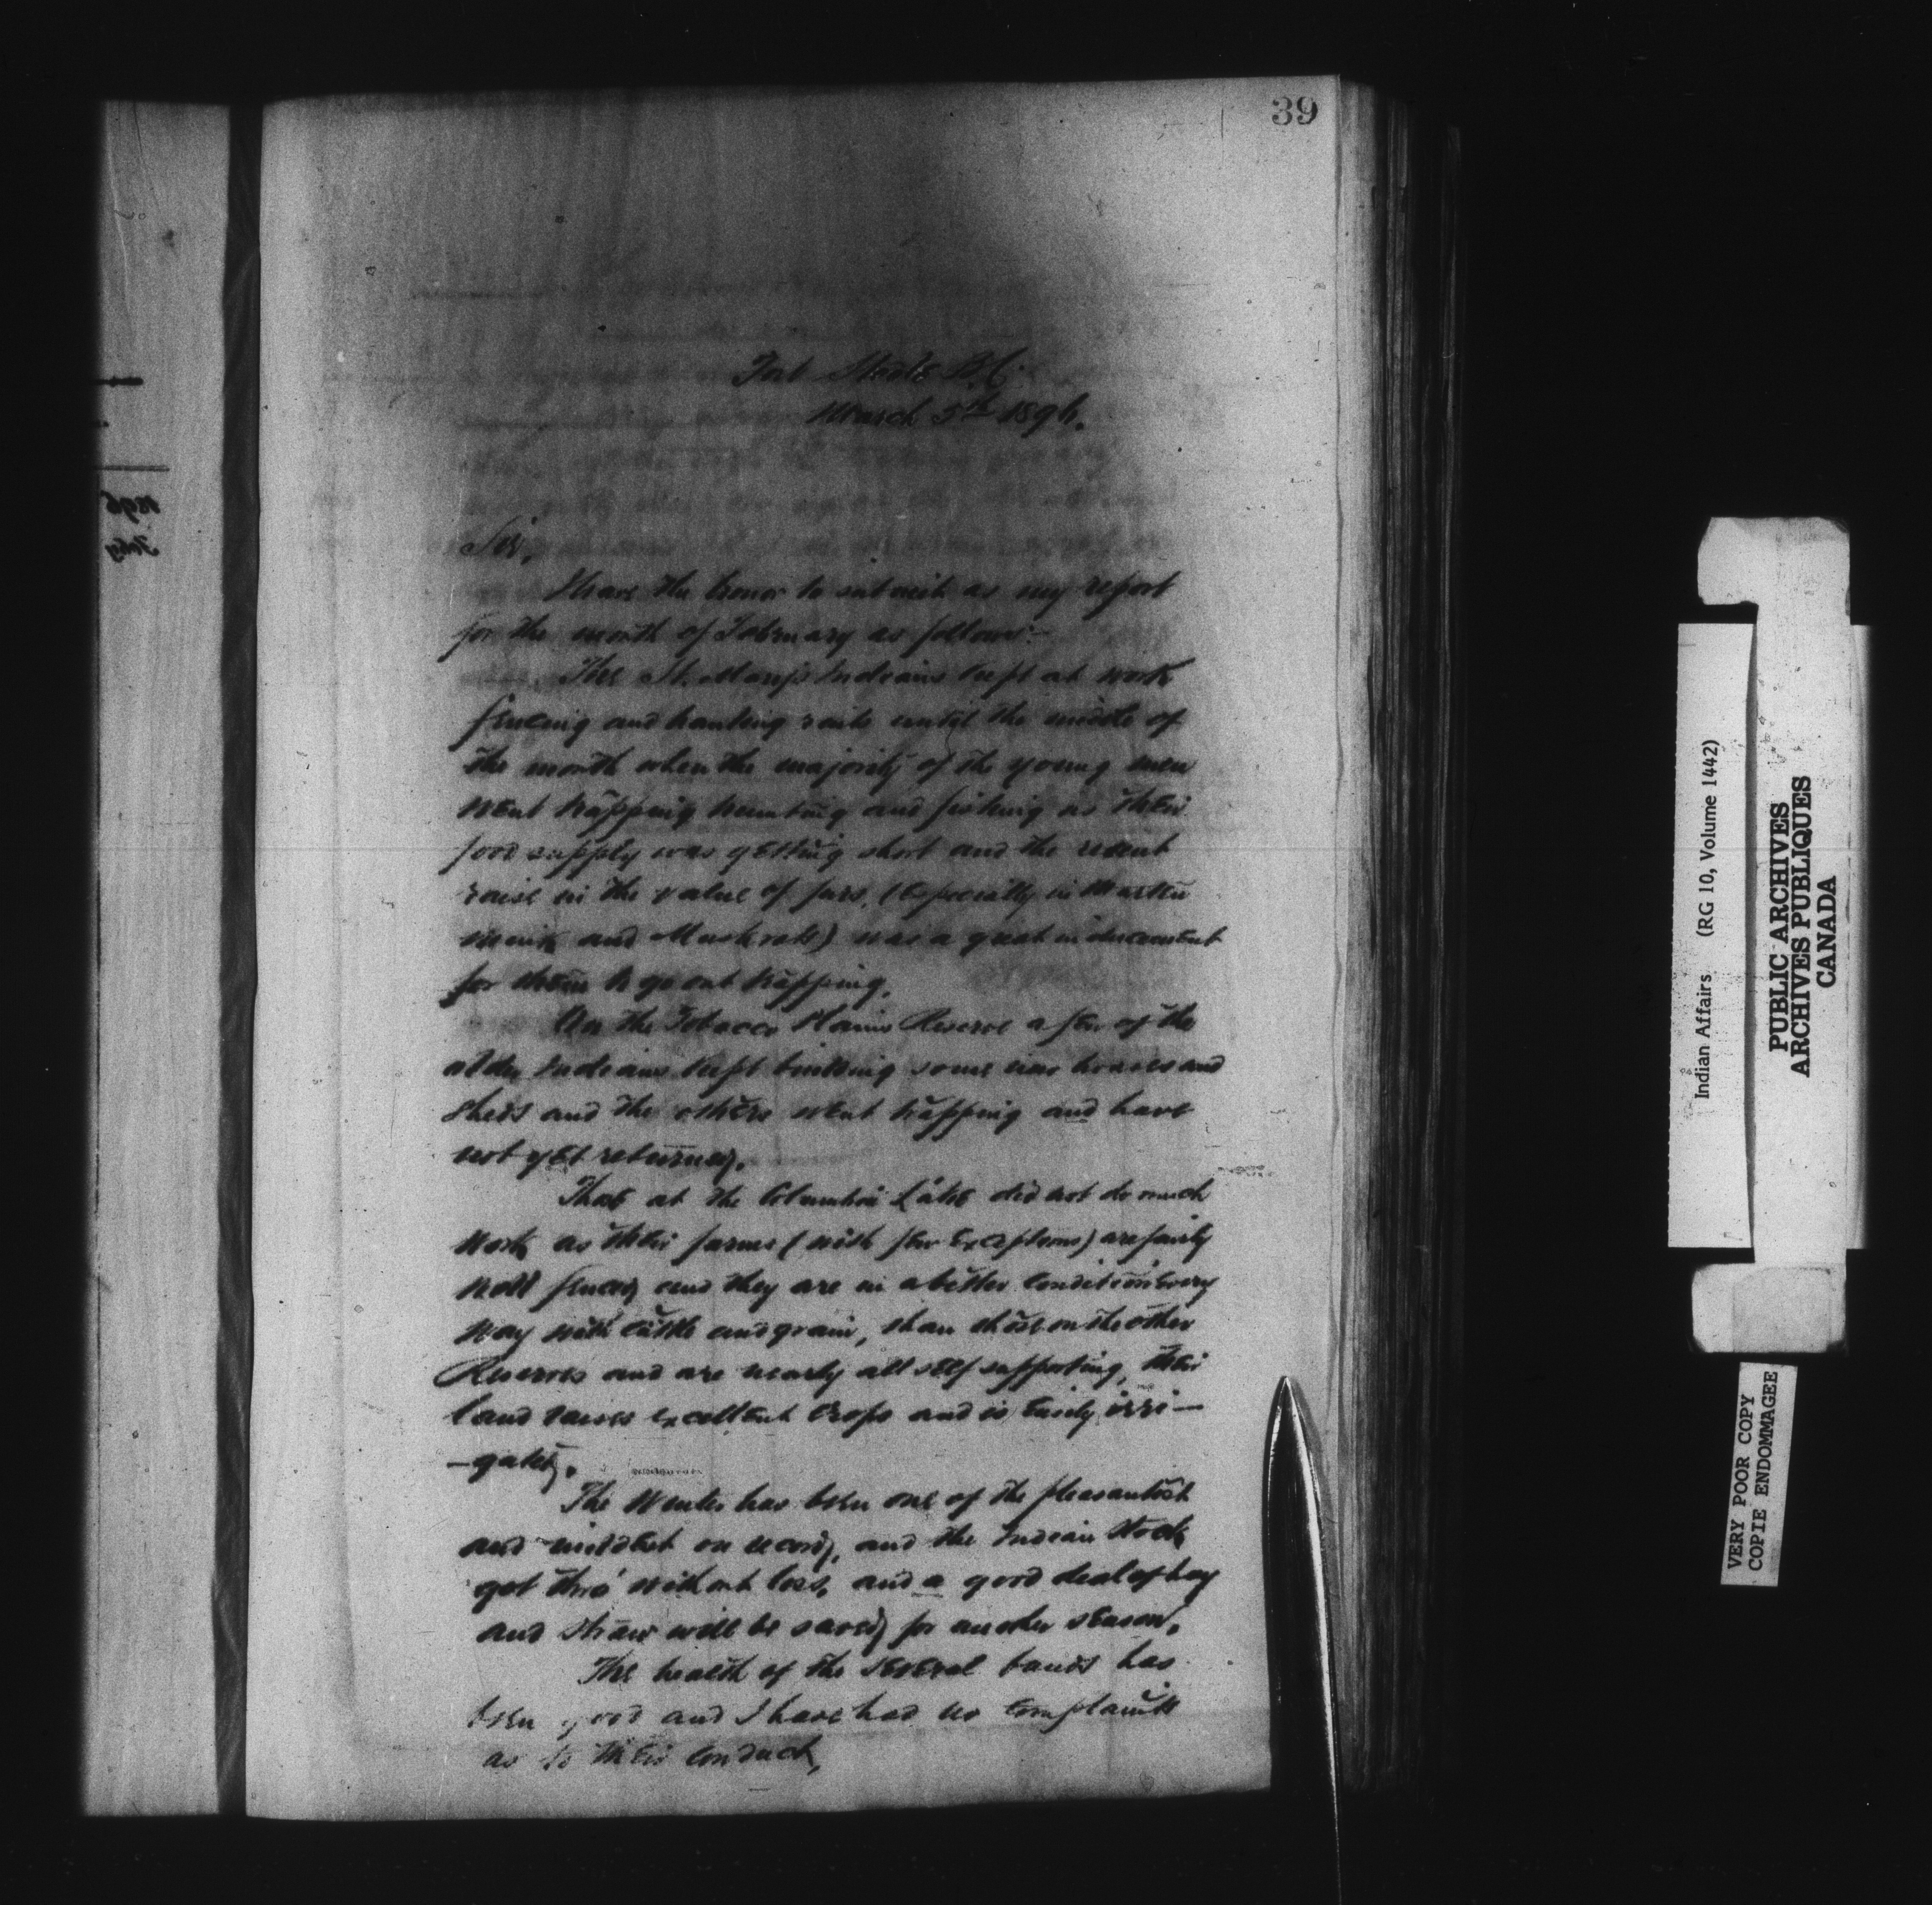 39
Fort Steele B.C.
March 5th 1896.
Sir,
I have the honor to submit as my report
for the month of February as follows:-
The St. Mary's Indians kept at work
fencing and hauling rails until the middle of
the month when the majority of the young men
went trapping hunting and fishing as their
food supply was getting short and the recent
raise in the value of furs, (especially in Marten
mink and Muskrats) was a great inducement
for them to go out trapping.
On the Tobacco Plains Reserve a few of the
older Indians kept building some new houses and
sheds and the others went trapping and have
not yet returned.
Those at the Columbia Lake did not do much
work as their farms (with few exceptions) are fairly
well fenced and they are in a better condition every
way with cattle and grain, than those on the other
Reserves and are nearly all self supporting, their
land raises excellent crops and is easily irri-
-gated.
The Winter has been one of the pleasantest
and mildest on record, and the Indian Stock
got thro' without loss, and a good deal of hay
and straw will be saved for another season.
The health of the several bands has
been good and I have had no complaints
as to their conduct,
1896
Feby
Indian Affairs (RG 10, Volume 1442)
PUBLIC ARCHIVES
ARCHIVES PUBLIQUES
CANADA
VERY POOR COPY
COPIE ENDOMMAGEE